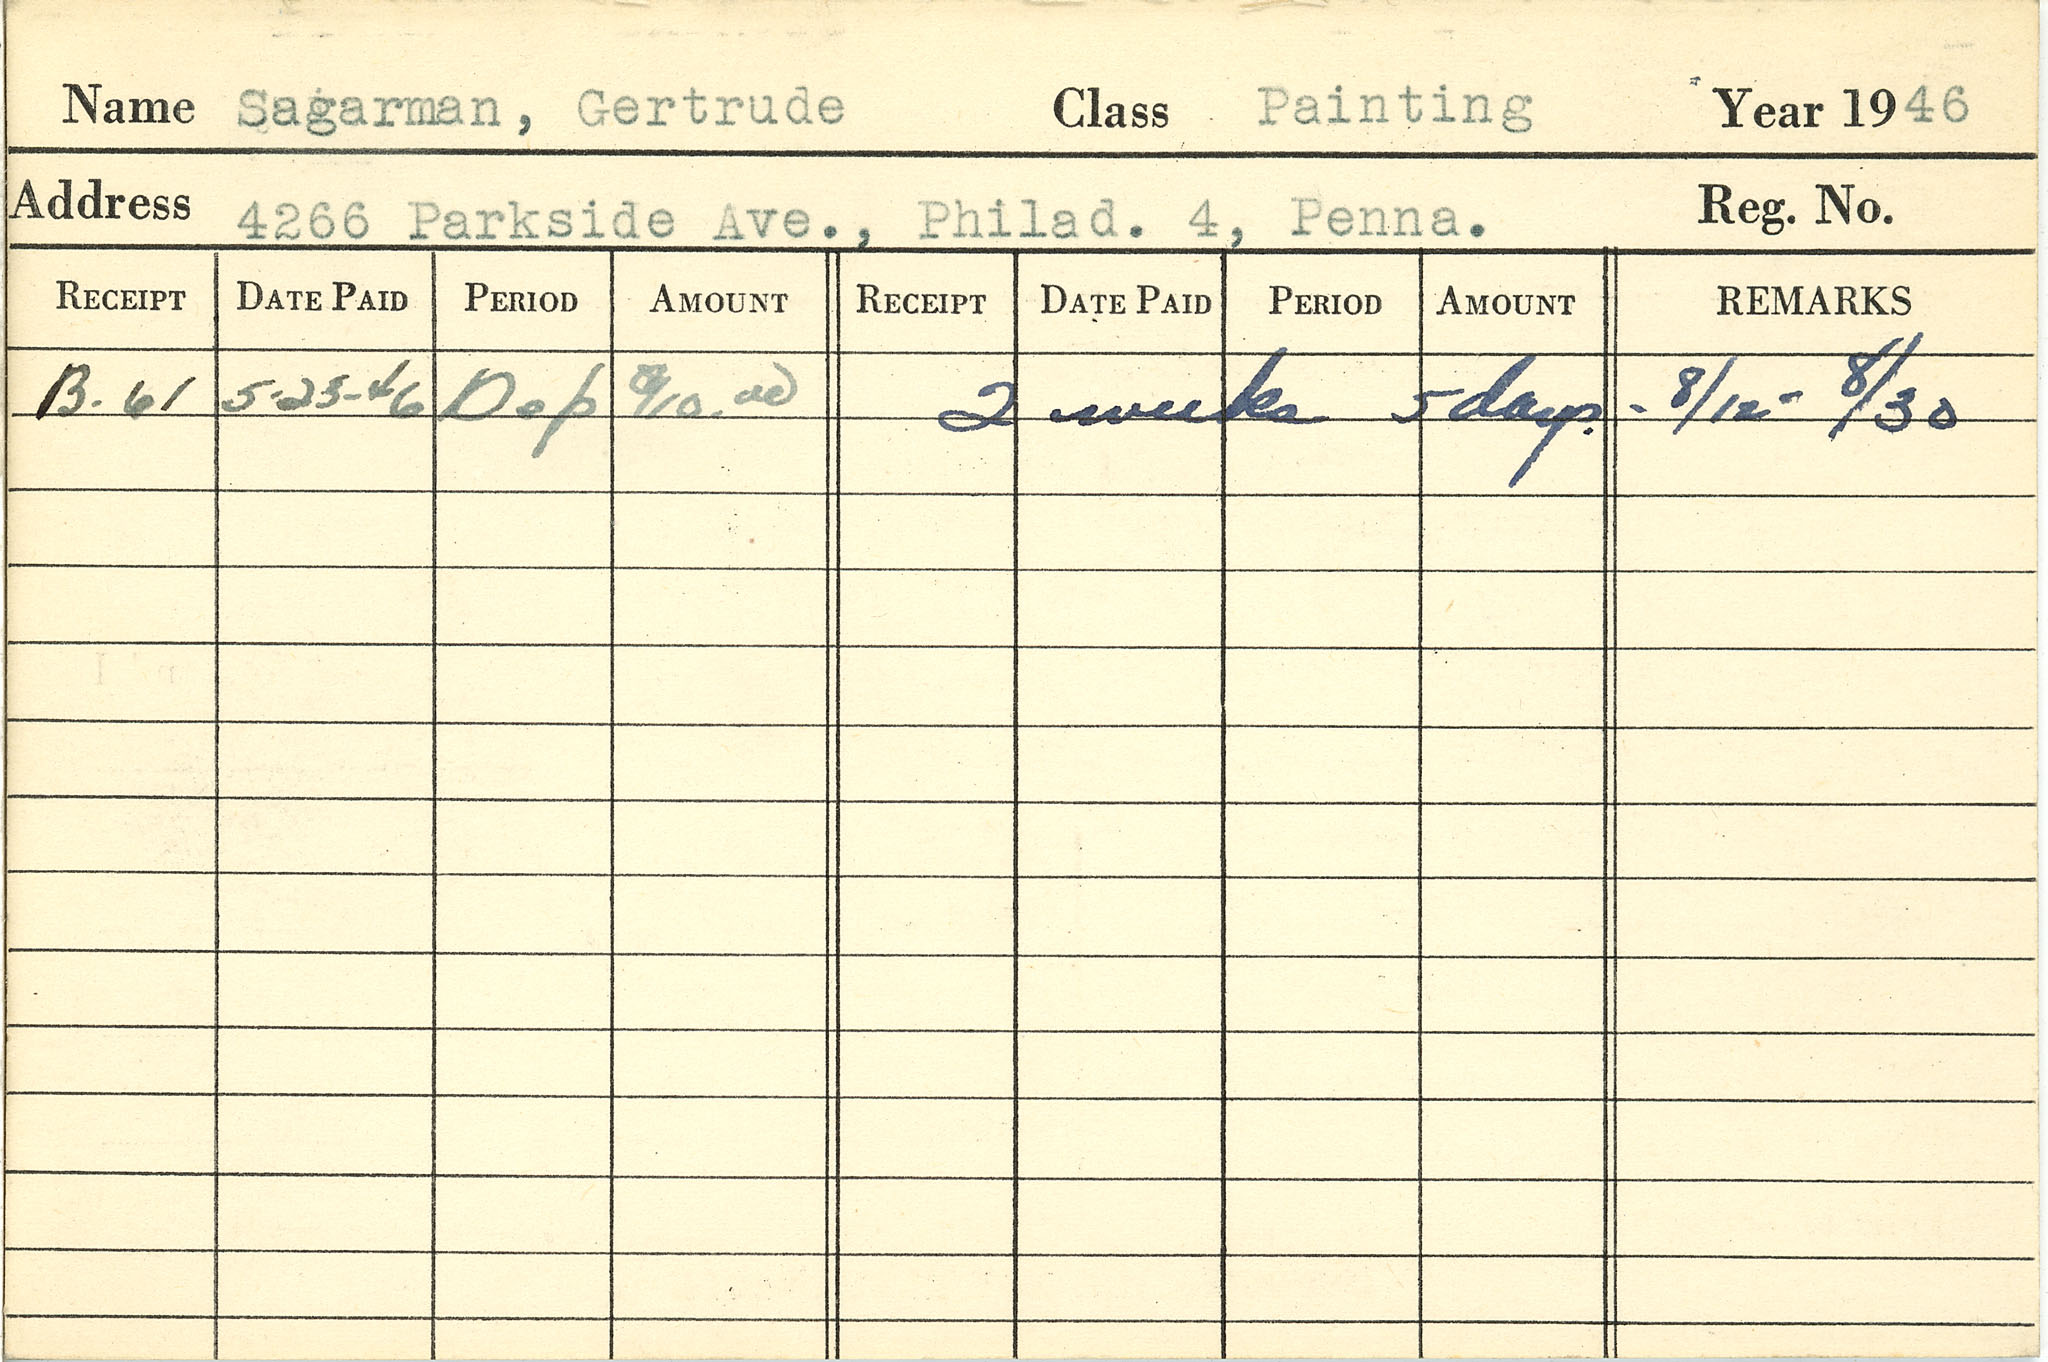 Name Sagarman, Gertrude Class Painting Year 1946
Address 4266 Parkside Ave., Philad. 4, Penna. Reg. No.
RECEIPT DATE PAID PERIOD AMOUNT RECEIPT DATE PAID PERIOD AMOUNT REMARKS
B-61 5-23-46 Dep $10.00 2 weeks 5 days. - 8/12 - 8/30